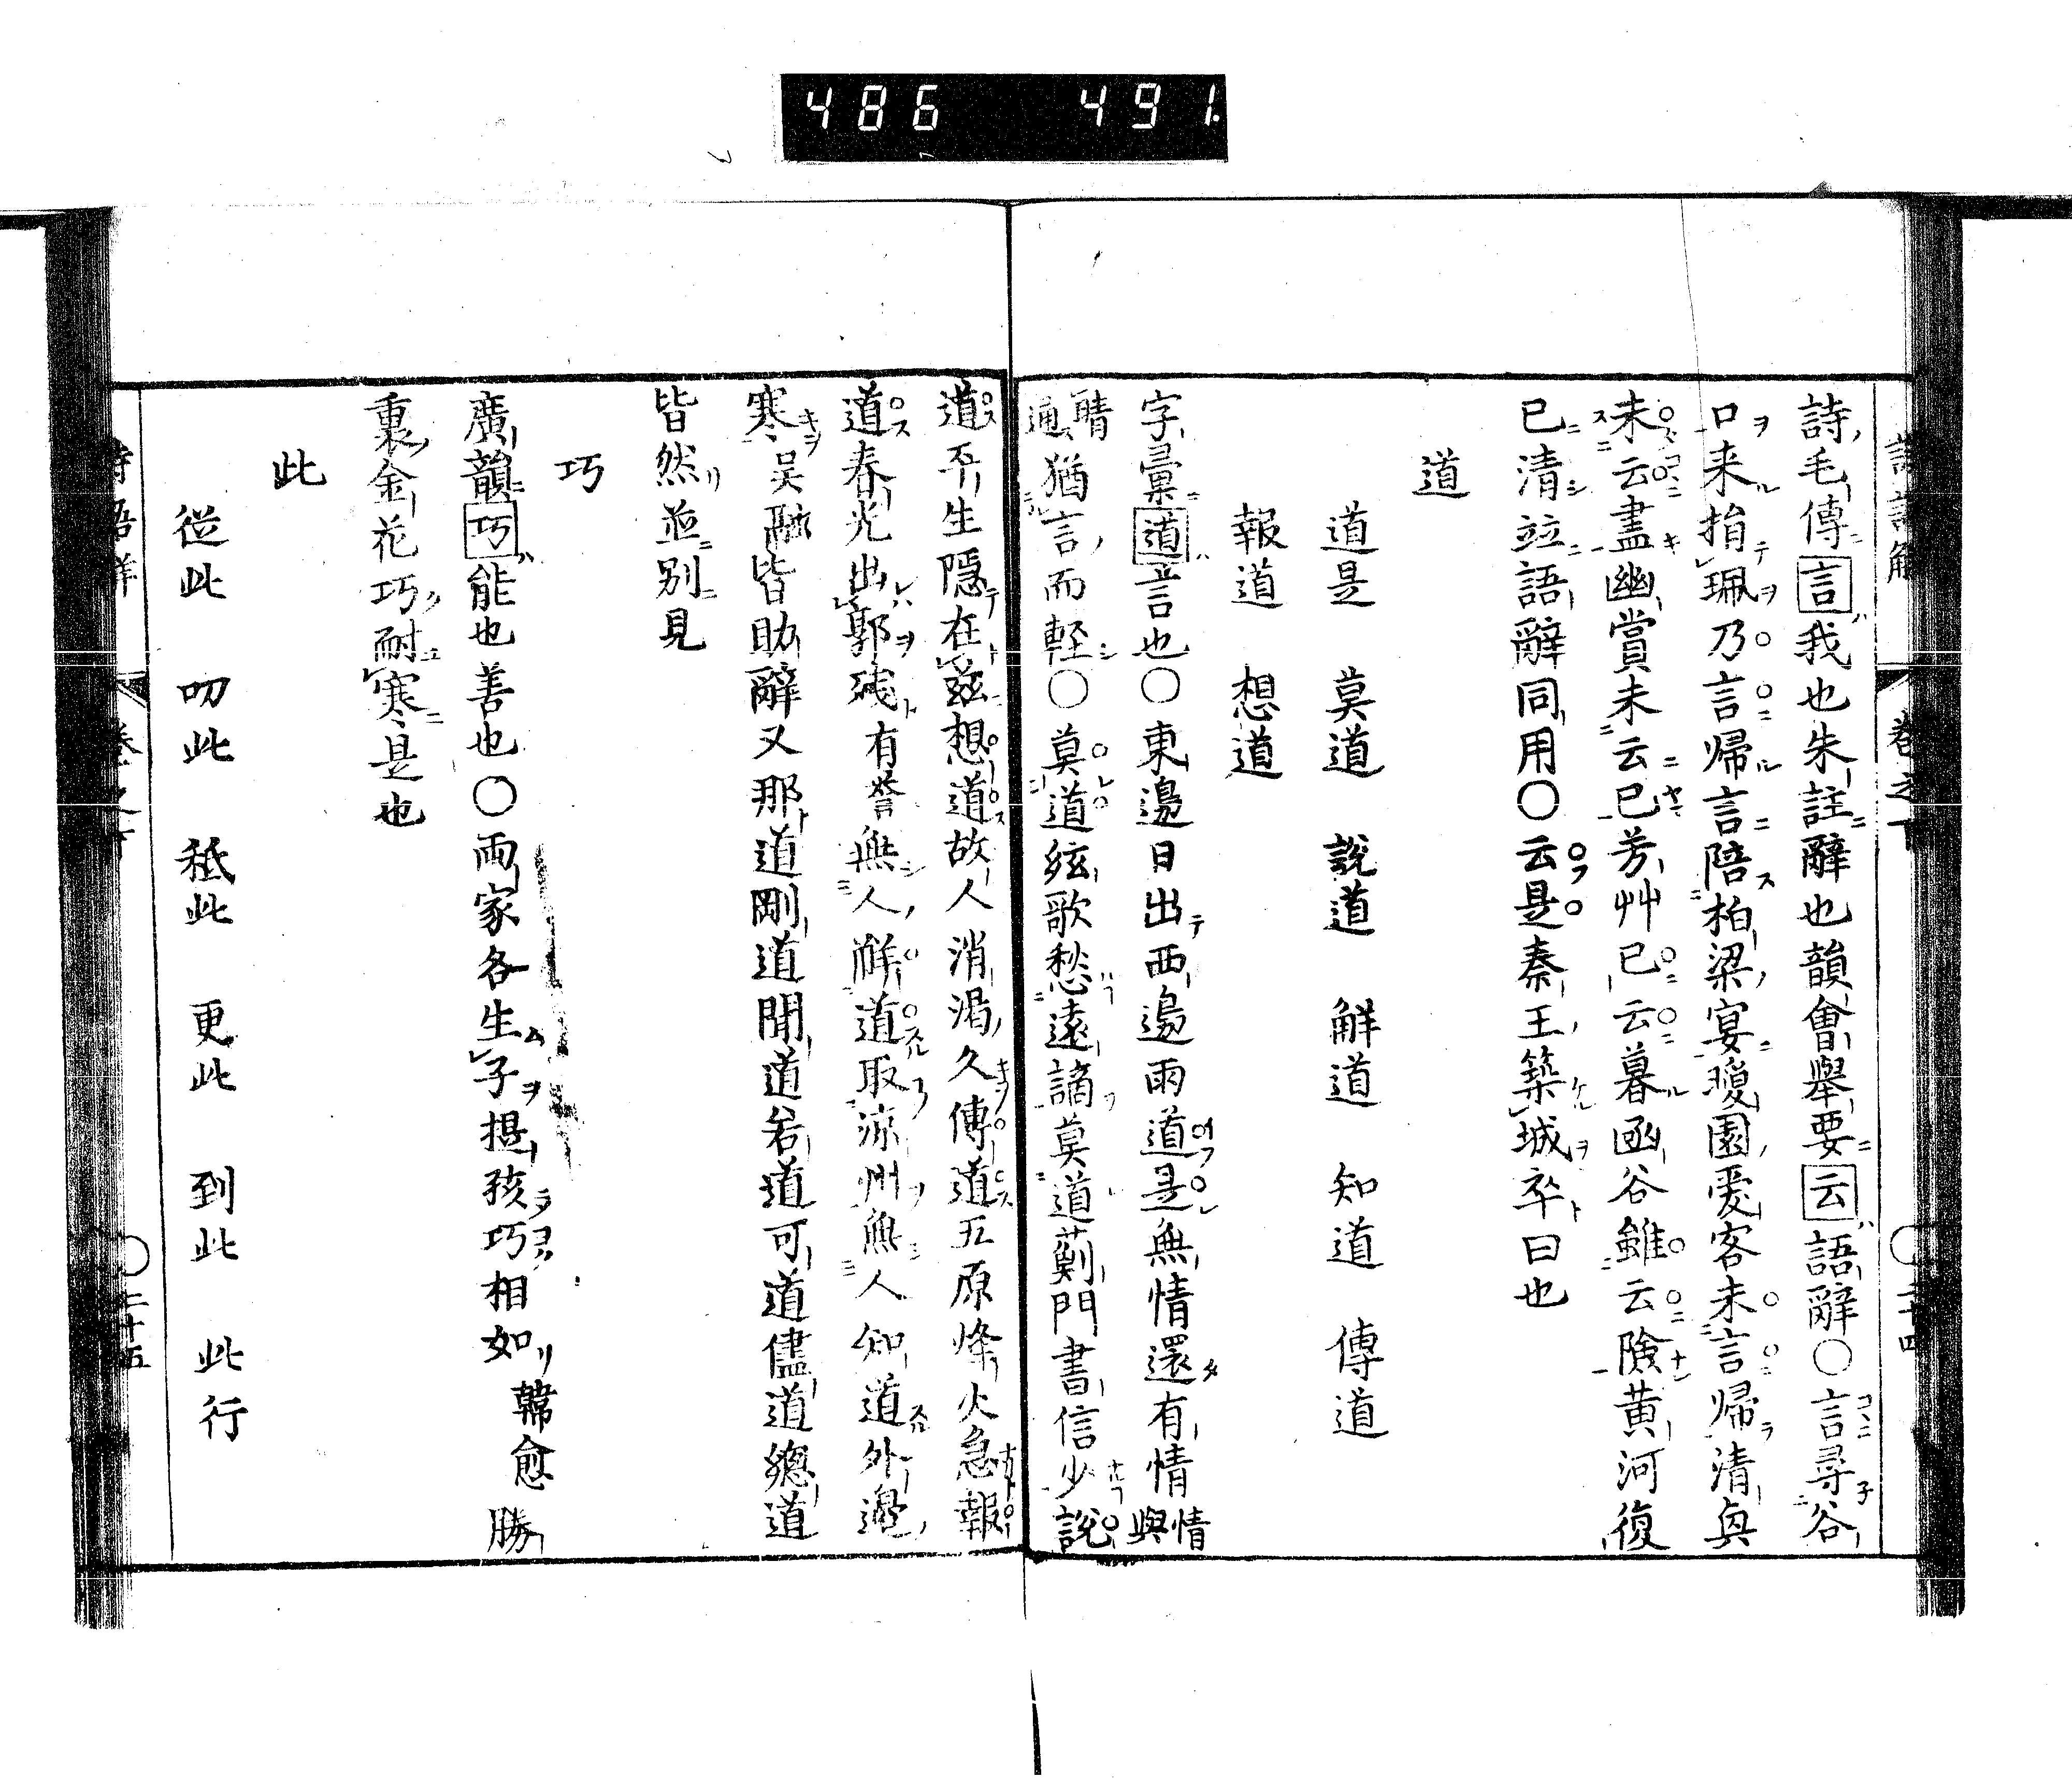 486 491.
詩毛傳言我也朱註辭也韻會舉要云語辭〇言尋谷
口来揹珮乃言帰言陪柏梁宴瓊園愛客未言帰清奐
未云盡幽賞未云已芳艸已云暮函谷雖云險黄河復
已清竝語辭同用〇云是秦王築城卒曰也
道
道是 莫道 說道 解道 知道 傳道
報道 想道
字彙道言也〇東邊日出西邊雨道是無情還有情情與
晴通猶言而軽〇莫道絃歌愁遠謫莫道薊門書信少說
道平生隱在茲想道故人消渇久傳道五原烽火急報
道春光出郭残有誉無人解道取涼州無人知道外邊
寒吴融皆助辭又那道剛道聞道若道可道儘道總道
皆然並別見
巧
廣韻巧能也善也〇兩家各生子提孩巧相如韓愈勝
裏金花巧耐寒是也
此
從此 叨此 秖此 更此 到此 此行
巻之下
二十五